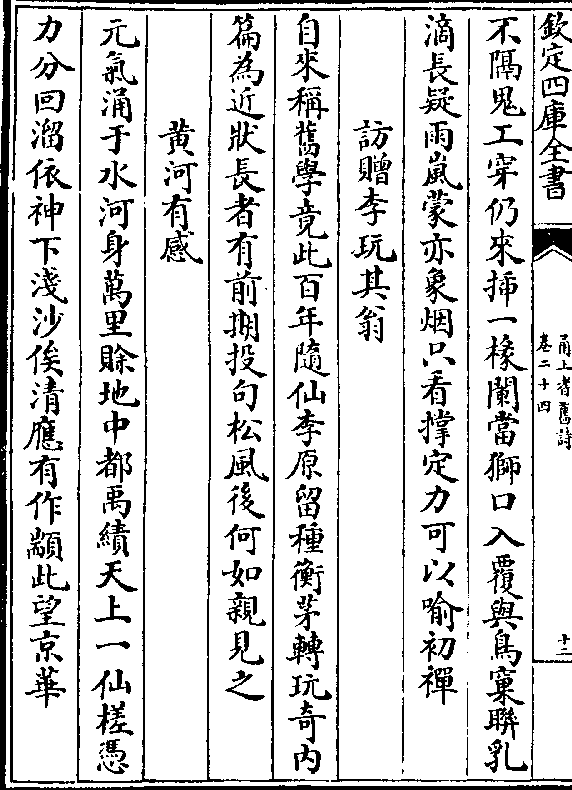 欽定四庫全書
甬上耆舊詩
卷二十四
十二
不隔鬼工穿仍來揷一椽闌當獅口入覆與鳥窠聯乳
滴長疑雨嵐蒙亦象烟只看撑定力可以喻初禪
訪贈李玩其翁
自來稱舊學竟此百年隨仙李原留種衡茅轉玩奇内
篇為近狀長者有前期投句松風後何如親見之
黄河有感
元氣涌于水河身萬里賖地中都禹績天上一仙槎憑
力分回溜依神下淺沙俟清應有作顒此望京華